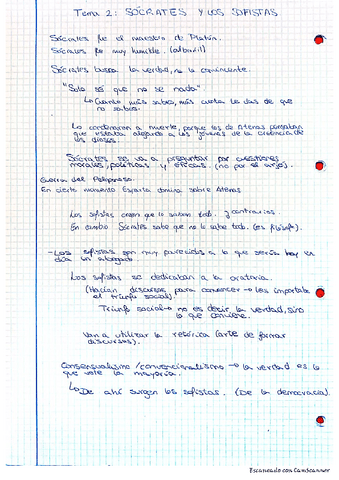 Tema 2: SÓCRATES Y LOS SOFISTAS
Sócrates fue el maestro de Platón.
Sócrates fue muy humilde. (albañil)
Sócrates busca la verdad, no lo conveniente.
"Solo sé que no se nada"
↳ Cuanto más sabes, más cuenta te das de que
no sabes.
Lo condenaron a muerte, porque los de Atenas pensaban
que estaba alejando a los jóvenes de la creencia de
los dioses.
Sócrates se va a preguntar por cuestiones
morales, políticas y éticas. (no por el arjé).
Guerra del Peloponeso.
En cierto momento Esparta domina sobre Atenas
Los sofistas creen que lo saben todo. y contrarios.
En cambio Sócrates sabe que no lo sabe todo. (es filósofo).
- Los sofistas son muy parecidos a lo que sería hoy en
día un abogado.
Los sofistas se dedicaban a la oratoria.
(Hacían discursos para convencer → les importaba
el triunfo social).
Triunfo social → no es decir la verdad, sino
lo que conviene.
Van a utilizar la retórica (arte de formar
discursos).
Consensualismo / convencionalismo → la verdad es lo
que vote la mayoría.
↳ De ahí surgen los sofistas. (De la democracia).
Escaneado con CamScanner